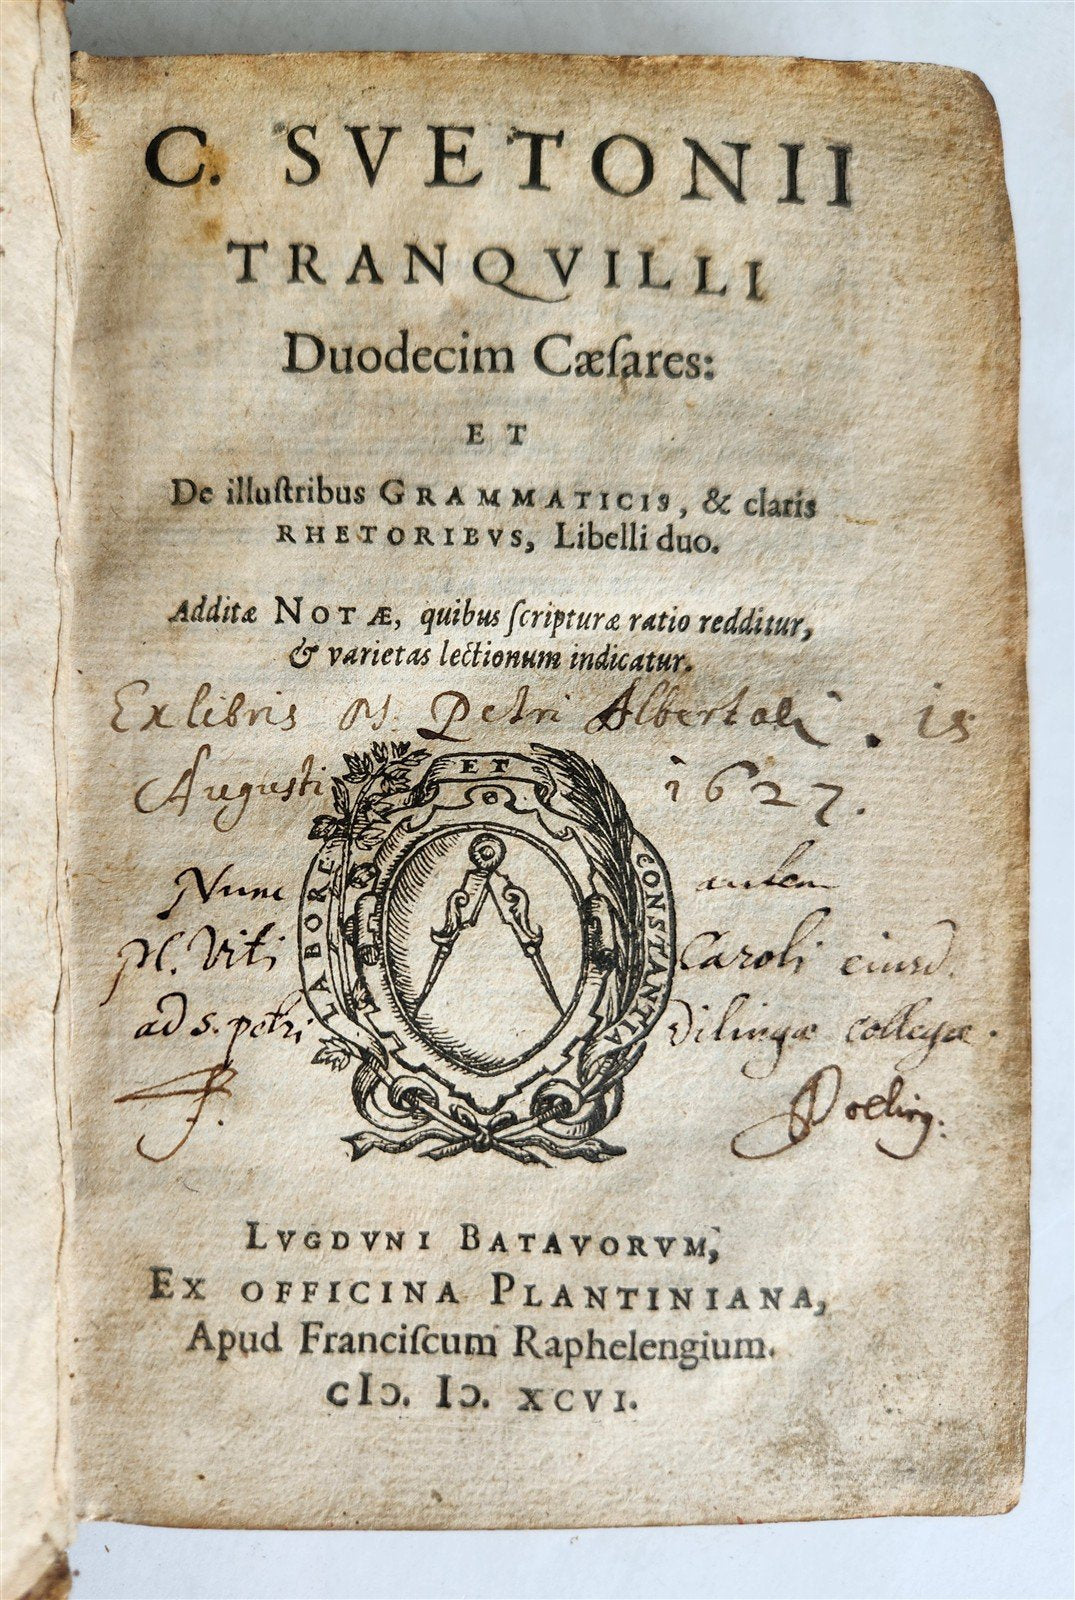 C. SVETONII
TRANQVILLI
Duodecim Cæſares:
ET
De illuſtribus GRAMMATICIS, & claris
RHETORIBVS, Libelli duo.
Additæ NOTÆ, quibus ſcripturæ ratio redditur,
& varietas lectionum indicatur.
Ex libris M. Petri Albertali. 18
Augusti 1627.
ET
LABORE
CONSTANTIA
Nunc autem
M. Viti Caroli eiusd.
ad s. petri Dilingæ collegæ.
LVGDVNI BATAVORVM,
EX OFFICINA PLANTINIANA,
Apud Franciſcum Raphelengium.
cIɔ. Iɔ. XCVI.